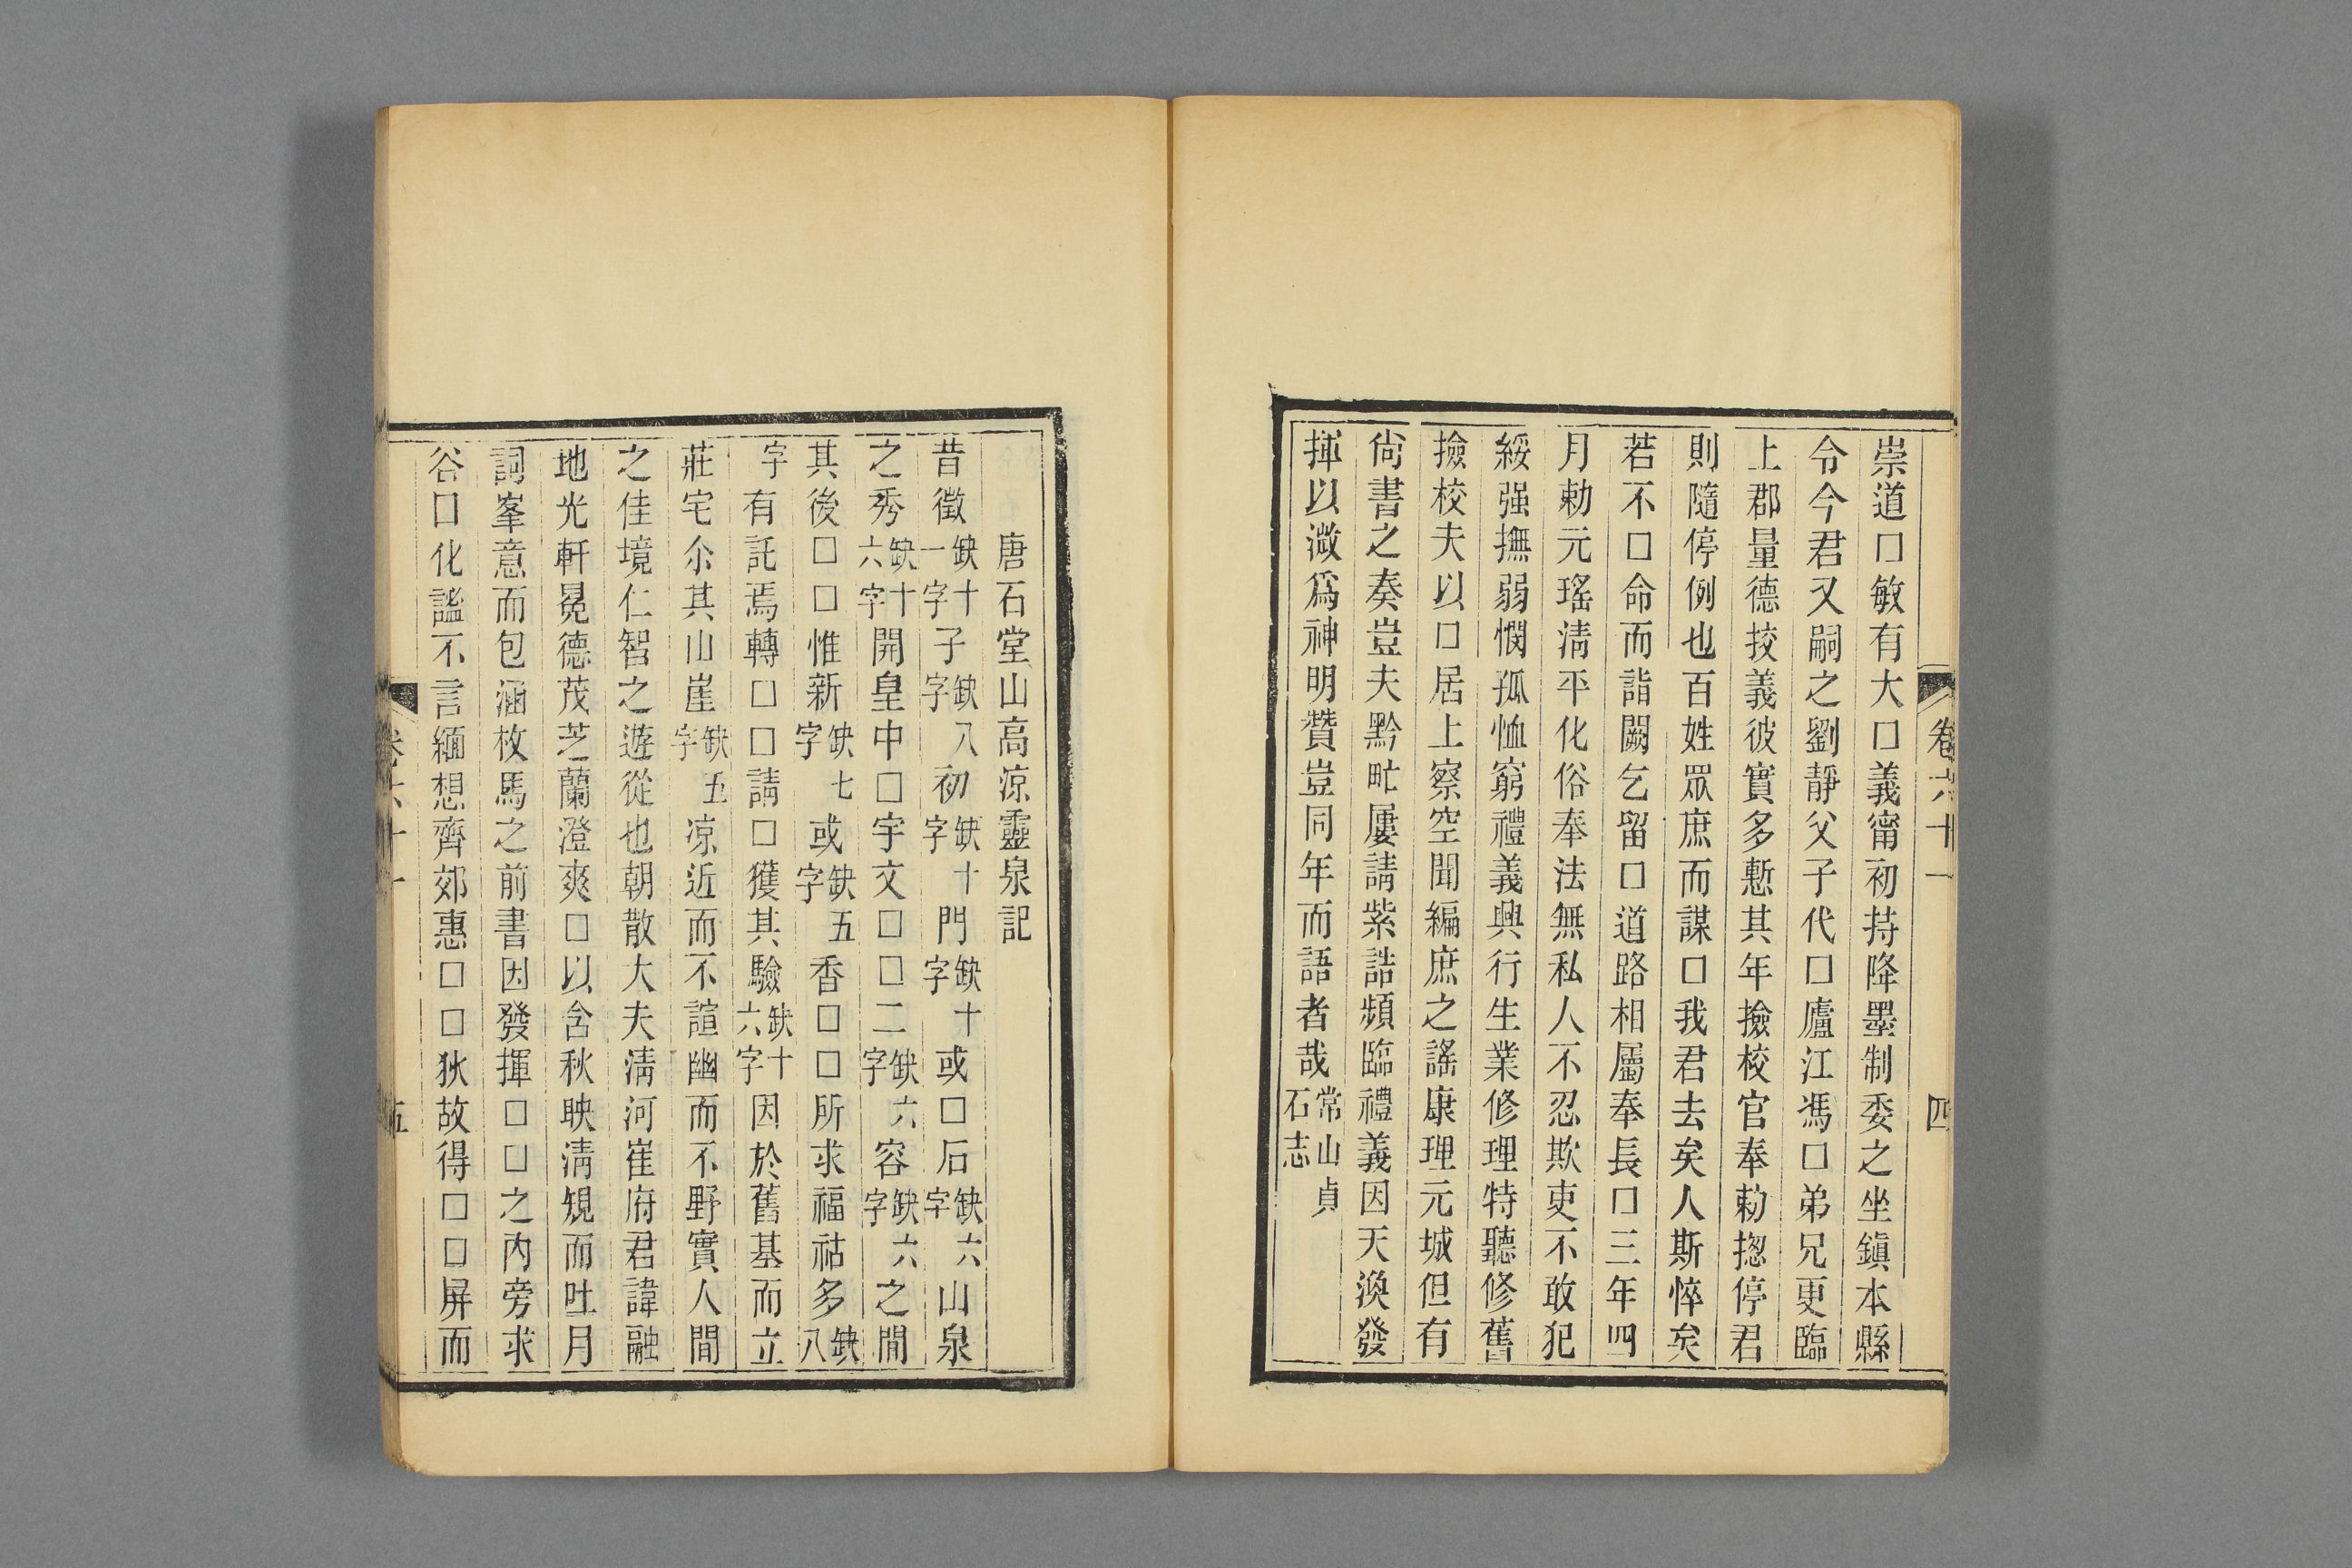 卷六十一 四
崇道口敏有大口義甯初持降墨制委之坐鎮本縣
令今君又嗣之劉靜父子代口廬江馮口弟兄更臨
上郡量德挍義彼實多慙其年撿校官奉勅揔停君
則隨停例也百姓眾庶而謀口我君去矣人斯悴矣
若不口命而詣闕乞留口道路相屬奉長口三年四
月勅元瑤淸平化俗奉法無私人不忍欺吏不敢犯
綏强撫弱憫孤恤窮禮義興行生業修理特聽修舊
撿校夫以口居上察空聞編庶之謠康理元城但有
尙書之奏豈夫黔甿屢請紫誥頻臨禮義因天渙發
揮以激爲神明贊豈同年而語者哉常山貞石志
唐石堂山高凉靈泉記
昔徵缺十一字子缺八字初缺十字門缺十字或口后缺六字山泉
之秀缺十六字開皇中口宇文口口二缺六字容缺六字之閒
其後口口惟新缺七字或缺五字香口口所求福祜多缺八
字有託焉轉口口請口獲其驗缺十六字因於舊基而立
莊宅尒其山崖缺五字凉近而不諠幽而不野實人閒
之佳境仁智之遊從也朝散大夫淸河崔府君諱融
地光軒冕德茂芝蘭澄爽口以含秋映淸規而吐月
詞峯意而包涵枚馬之前書因發揮口口之內旁求
谷口化謐不言緬想齊郊惠口口狄故得口口屏而
卷六十一 五